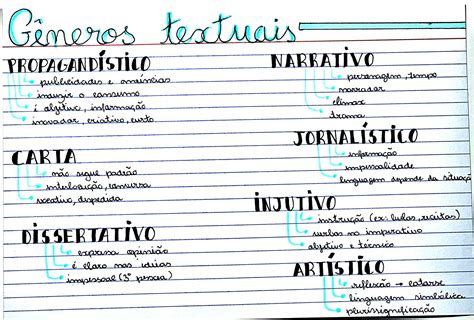 Gêneros textuais
PROPAGANDÍSTICO
publicidades e anúncios
induzir o consumo
é objetivo, informação
inovador, criativo, curto
CARTA
não segue padrão
interlocução, conversa
vocativo, despedida
DISSERTATIVO
expressa opinião
é claro nas ideias
impessoal (3ª pessoa)
NARRATIVO
personagem, tempo
narrador
clímax
drama
JORNALÍSTICO
informação
impessoalidade
linguagem depende da situação
INJUTIVO
instrução (ex: bulas, receitas)
verbos no imperativo
objetivo e técnico
ARTÍSTICO
reflexão → catarse
linguagem simbólica
plurissignificação